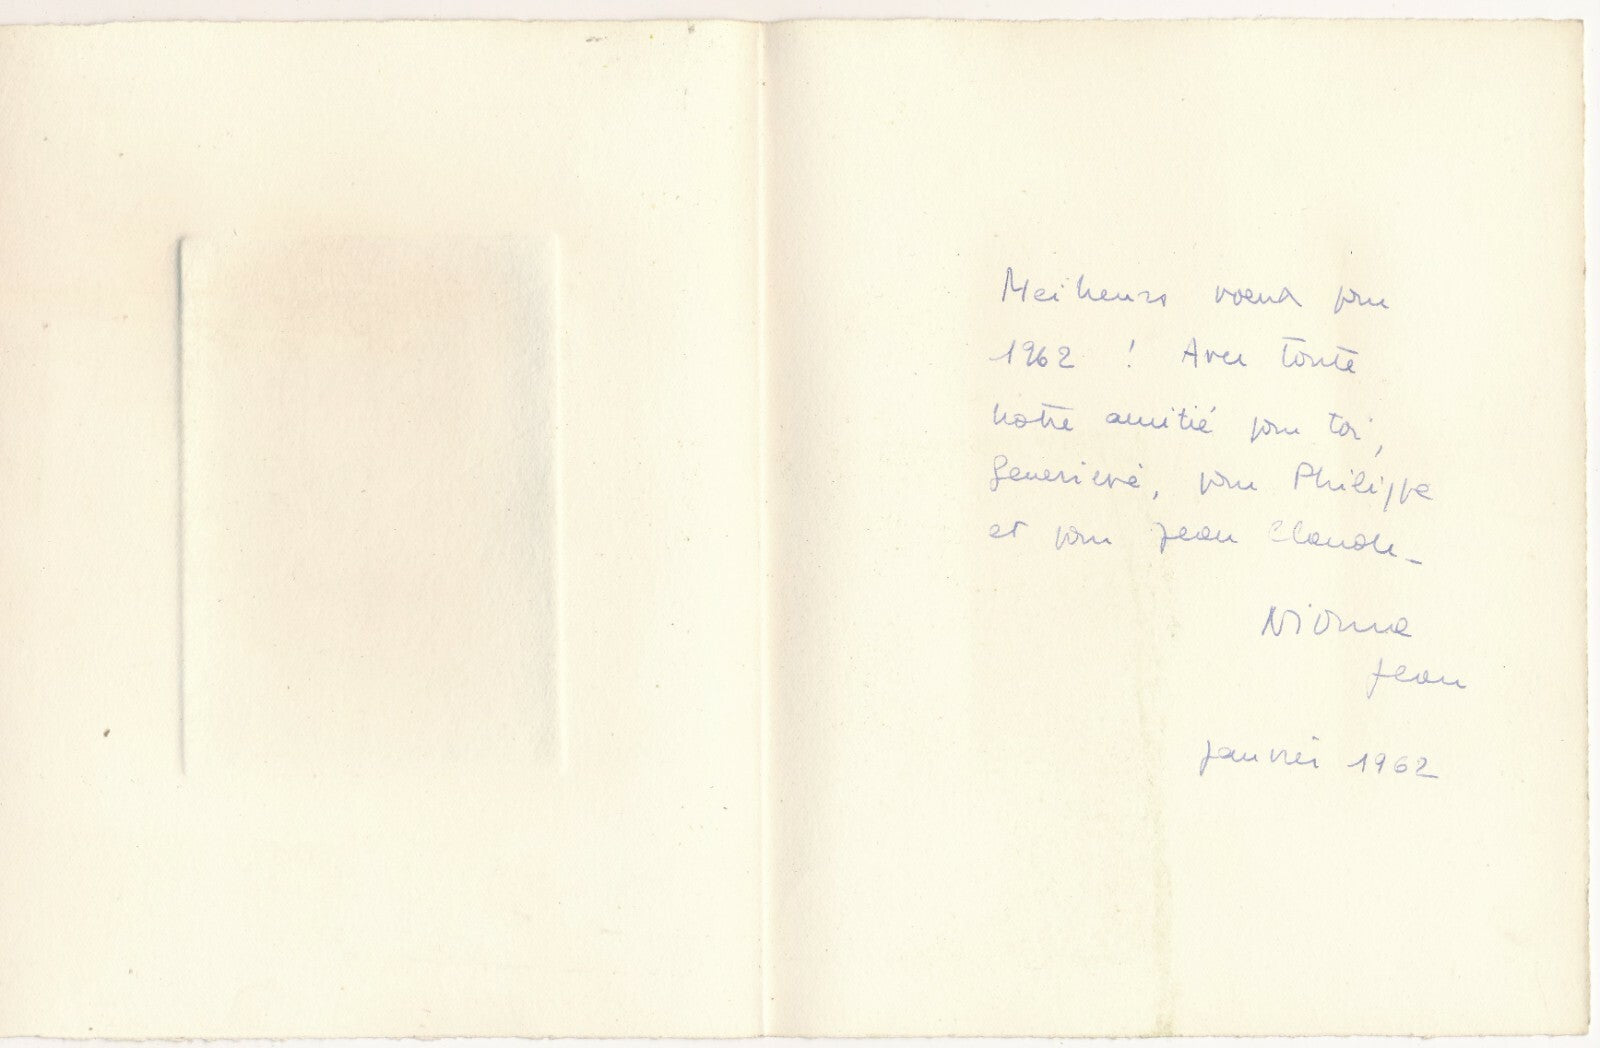 Meilleurs voeux pour
1962 ! Avec toute
notre amitié pour toi,
Geneviève, pour Philippe
et pour Jean Claude_
Jean
janvier 1962